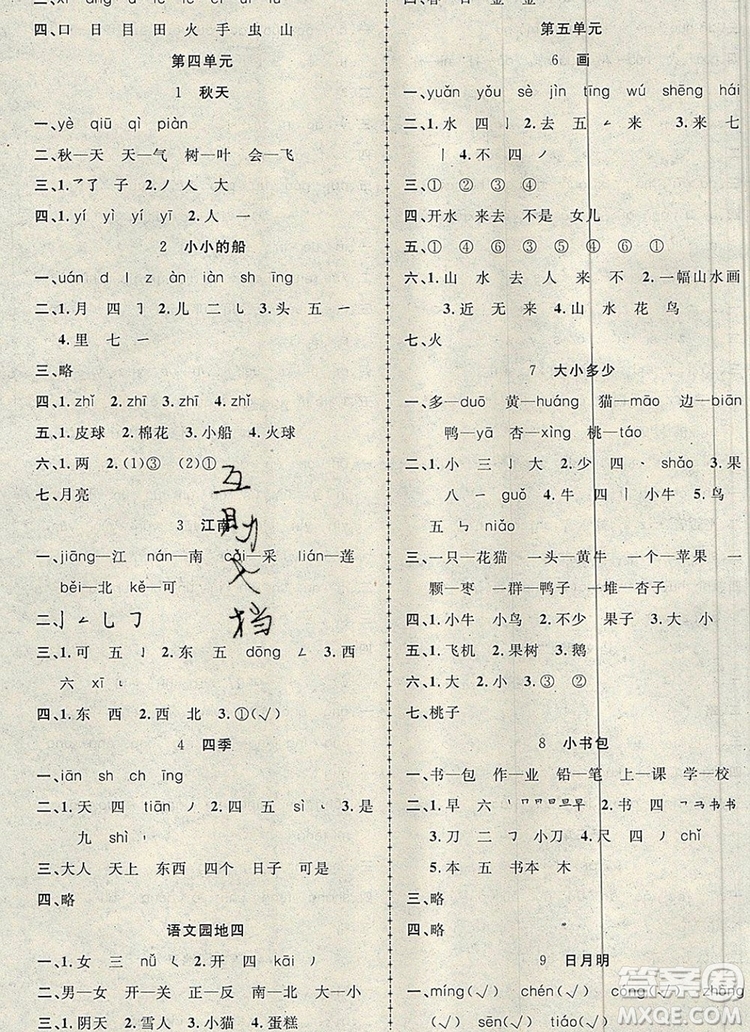 四、口 日 目 田 火 手 虫 山
第四单元
1 秋天
一、yè qiū qì piàn
二、秋—天 天—气 树—叶 会—飞
三、1.乛了 子 2.ノ 人 大
四、1.yí yí yì yī 2.人 一
2 小小的船
一、uán d l z àn iàn sh īng
二、1.月 四 ㇆ 2.儿 二 乚 3.头 五 一
4.里 七 一
三、略
四、1.zhǐ 2.zhī 3.zhǐ 4.zhǐ
五、1.皮球 2.棉花 3.小船 4.火球
六、1.两 2.(1)③ (2)①
七、月亮
3 江南
一、jiāng—江 nán—南 cǎi—采 lián—莲
běi—北 kě—可
二、亅 ㄥ 乚 ㇆
三、1.可 五 亅 2.东 五 dōng ㄥ 3.西
六 xī ㇄
四、1.东 西 2.西 北 3.①(√)
4 四季
一、iān sh ch īng
二、1.天 四 tiān ノ 2.四 五 sì ㇄ 3.是
九 shì 丶
三、大人 天上 东西 四个 日子 可是
四、略
语文园地四
一、1.女 三 nǚ ㄑ 2.开 四 kāi ノ
二、男—女 开—关 正—反
三、1.阴天 2.雪人 3.小猫 4.蛋糕
互助文档
第五单元
6 画
一、yuǎn yǒu sè jìn tīng wú shēng hái
二、1.水 四 亅 2.去 五 ㄥ 来 3.来 七
丨 4.不 四 ノ
三、① ② ③ ④
四、开水 来去 不是 女儿
五、① ④ ③ ② ⑤ ⑥
六、1.山 水 去 人 来 不 2.一幅山水画
3.近 无 来 4.山 水 花 鸟
七、火
7 大小多少
一、多—duō 黄—huáng 猫—māo 边—biān
鸭—yā 杏—xìng 桃—táo
二、1.小 三 亅 大 2.少 四 ノ shǎo 3.果
八 一 guǒ 4.牛 四 丨 小牛 5.鸟
五 ㄣ niǎo
三、一只—花猫 一头—黄牛 一个—苹果 一
颗—枣 一群—鸭子 一堆—杏子
四、1.小牛 小鸟 2.不少 果子 3.大 小
五、1.飞机 2.果树 3.鹅
六、1.大 小 2.小 大 3.③ ②
七、桃子
8 小书包
一、书—包 作—业 铅—笔 上—课 学—校
二、1.早 六 丨 冂 日 日 旦 早 2.书 四 书包
3.刀 二 ㇆ 小刀 4.尺 四 ㇏ chǐ
5.本 五 书本 木
三、略
四、略
9 日月明
一、míng(√) chén(√) cóng(√) zhōng
(√) sēn(√) tiáo(√)
答案圈
MXQE.COM